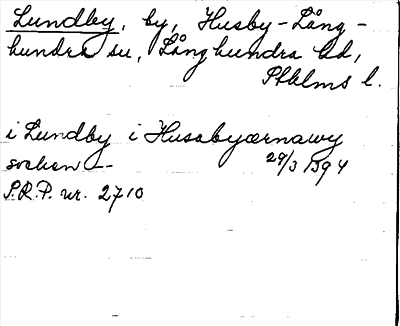 Lundby, by, Husby-Lång-
hundra sn, Långhundra hd,
Sthlms l.
i Lundby i Husabyærnawy
soken - 29/3 1394
S.R.P. nr. 2710